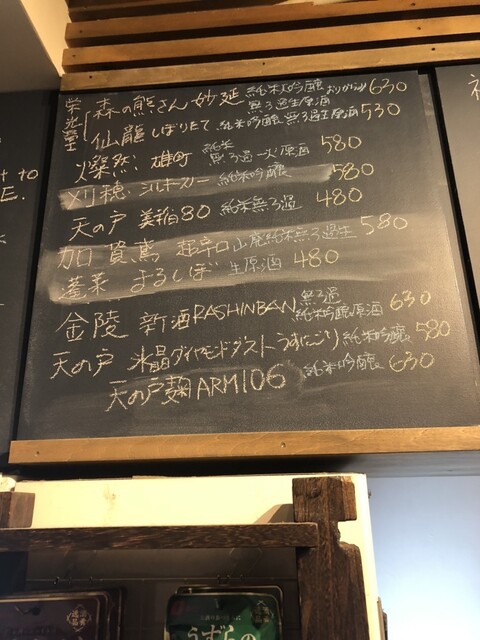 栄光
森の熊さん 妙延 純米大吟醸 おりがらみ 無ろ過生原酒 630
仙龍 しぼりたて 純米吟醸 無ろ過生原酒 530
燦然 雄町 純米 無ろ過一火原酒 580
刈穂 シルキースノー 純米吟醸 580
天の戸 美稲80 純米無ろ過 480
加賀鳶 超辛口 山廃純米無ろ過生 580
蓬莱 まるしぼ 生原酒 480
金陵 新酒 RASHINBAN 無ろ過 純米吟醸原酒 630
天の戸 氷晶ダイヤモンドダスト うすにごり 純米吟醸 580
天の戸 麹 ARM106 純米吟醸 630
t to
E.
うずらの